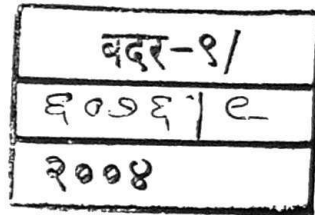 वदर-९/
६०७६/९
२००४